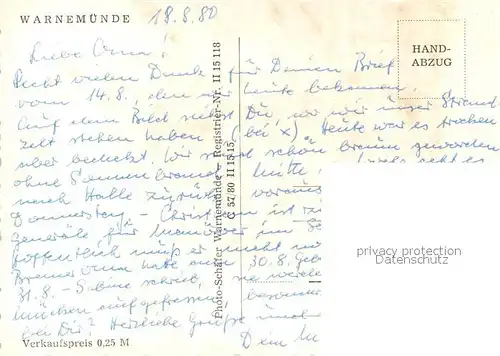 WARNEMÜNDE 18.8.80
HAND-
ABZUG
Liebe Oma!
Recht vielen Dank für Deinen Brief
vom 14.8., den wir heute bekamen.
Auf dem Bild siehst Du, wo wir unser Strand-
zelt stehen haben (bei x). Heute war es trocken
aber bedeckt. Wir sind schön braun geworden
ohne Sonnenbrand. Mitte
nach Halle zurück, voraus
Donnerstag – Christian ist
für Manöver im
hoffentlich muß er nicht
Oma hat am 30.8. Geb
31.8. – Sabine schrieb, sie werde
Mücken aufgefressen,
bei Dir? Herzliche Grüße und
Dein
Photo-Schäfer Warnemünde – Registrier-Nr. II 15 118
C 57/80 II 15 15
Verkaufspreis 0,25 M
privacy protection
Datenschutz